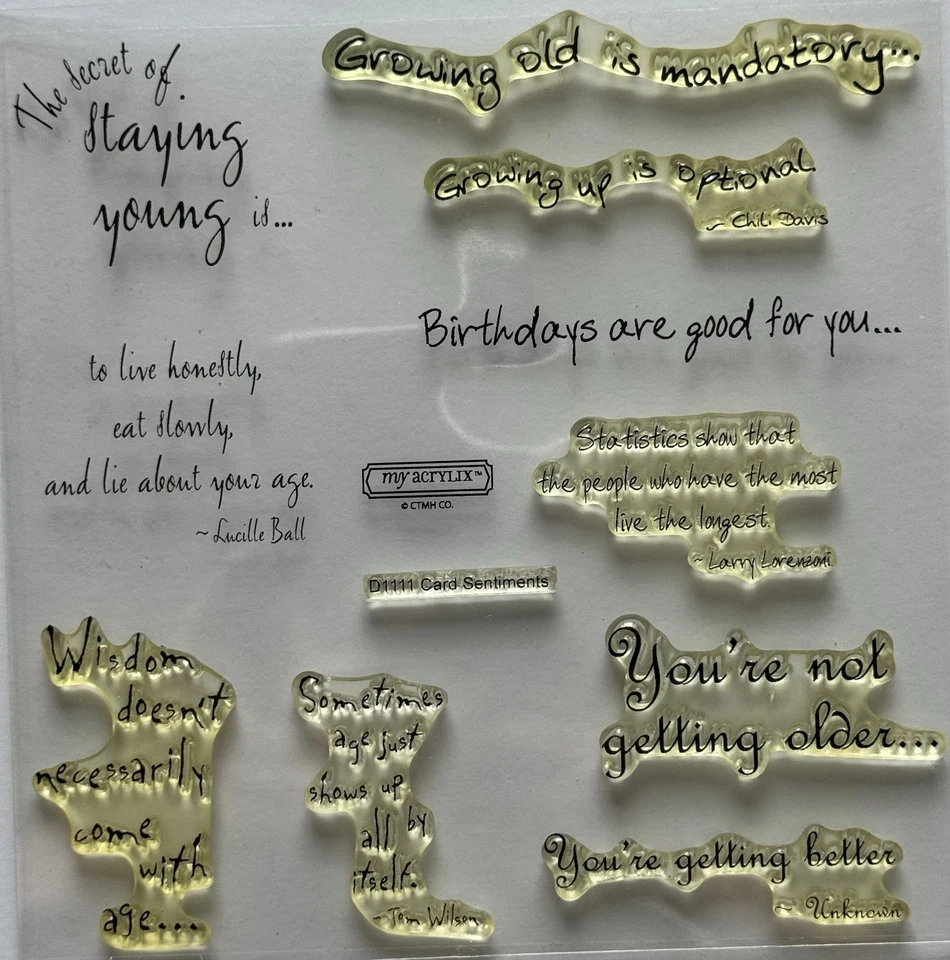 The secret of
staying
young is...
to live honestly,
eat slowly,
and lie about your age.
~Lucille Ball
Growing old is mandatory...
Growing up is optional.
~ Chili Davis
Birthdays are good for you...
Statistics show that
the people who have the most
live the longest.
~Larry Lorenzoni
my ACRYLIX™
© CTMH CO.
D1111 Card Sentiments
Wisdom
doesn't
necessarily
come
with
age...
Sometimes
age just
shows up
all by
itself.
~Tom Wilson
You're not
getting older...
You're getting better
~ Unknown